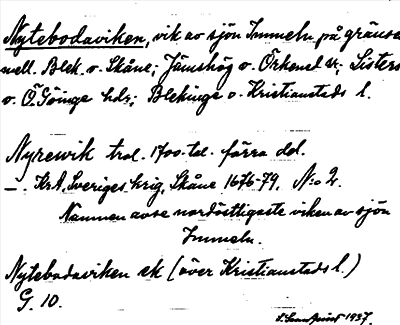 Nytebodaviken, vik av sjön Immeln på gränsen
mell. Blek. o. Skåne; Jämshög o. Örkened sk; Listers
o. Ö. Göinge hds; Blekinge o. Kristianstads l.
Nyrewik trol. 1700-tal. förra del.
–. KrA, Sveriges krig, Skåne 1676-79. N:o 2.
Namnen avse nordöstligaste viken av sjön
Immeln.
Nytebodaviken ek (över Kristianstads l.)
G. 10.
1937.